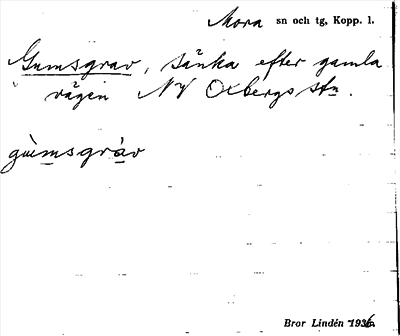 Mora sn och tg, Kopp. l.
Gumsgrav, sänka efter gamla
vägen NV Oxbergs stn.
gùmsgràv
Bror Lindén 1936.